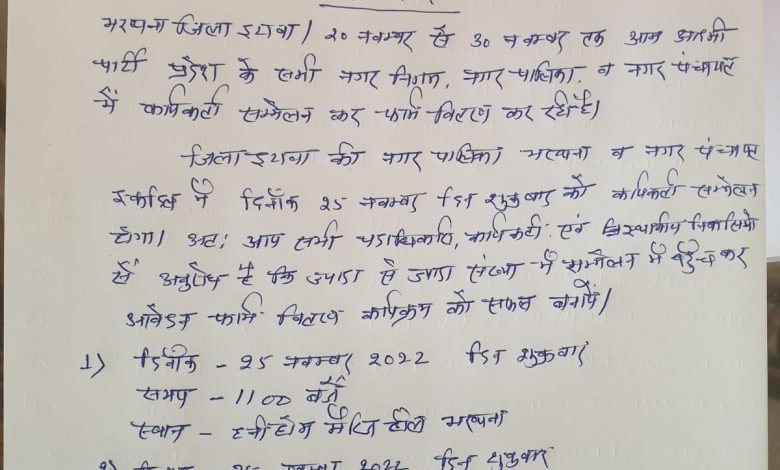 भरथना जिला इटावा। २० नवम्बर से ३० नवम्बर तक आम आदमी
पार्टी प्रदेश के सभी नगर निगम, नगर पालिका, व नगर पंचायत
में कार्यकर्ता सम्मेलन कर फार्म वितरण कर रही है।
जिला इटावा की नगर पालिका भरथना व नगर पंचायत
इकदिल में दिनाँक २५ नवम्बर दिन शुक्रवार को कार्यकर्ता सम्मेलन
होगा। अतः आप सभी पदाधिकारी, कार्यकर्ता एवं निवासियों
से अनुरोध है कि ज्यादा से ज्यादा संख्या में सम्मेलन में पहुँच कर
आवेदन फार्म वितरण कार्यक्रम को सफल बनायें।
1) दिनाँक - २5 नवम्बर 2022 दिन शुक्रवार
समय - 11 00 बजे
स्थान - हॉल भरथना
२) 2022 दिन शुक्रवार